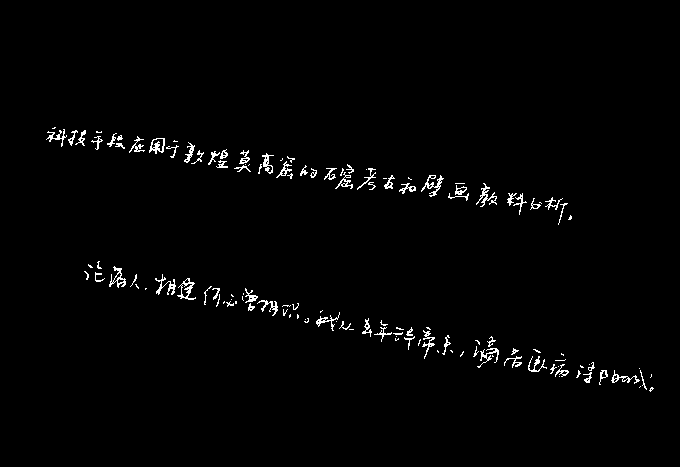 科技手段应用于敦煌莫高窟的石窟考古和壁画颜料分析。
沦落人,相逢何必曾相识。我从去年辞帝京,谪居卧病浔阳城。